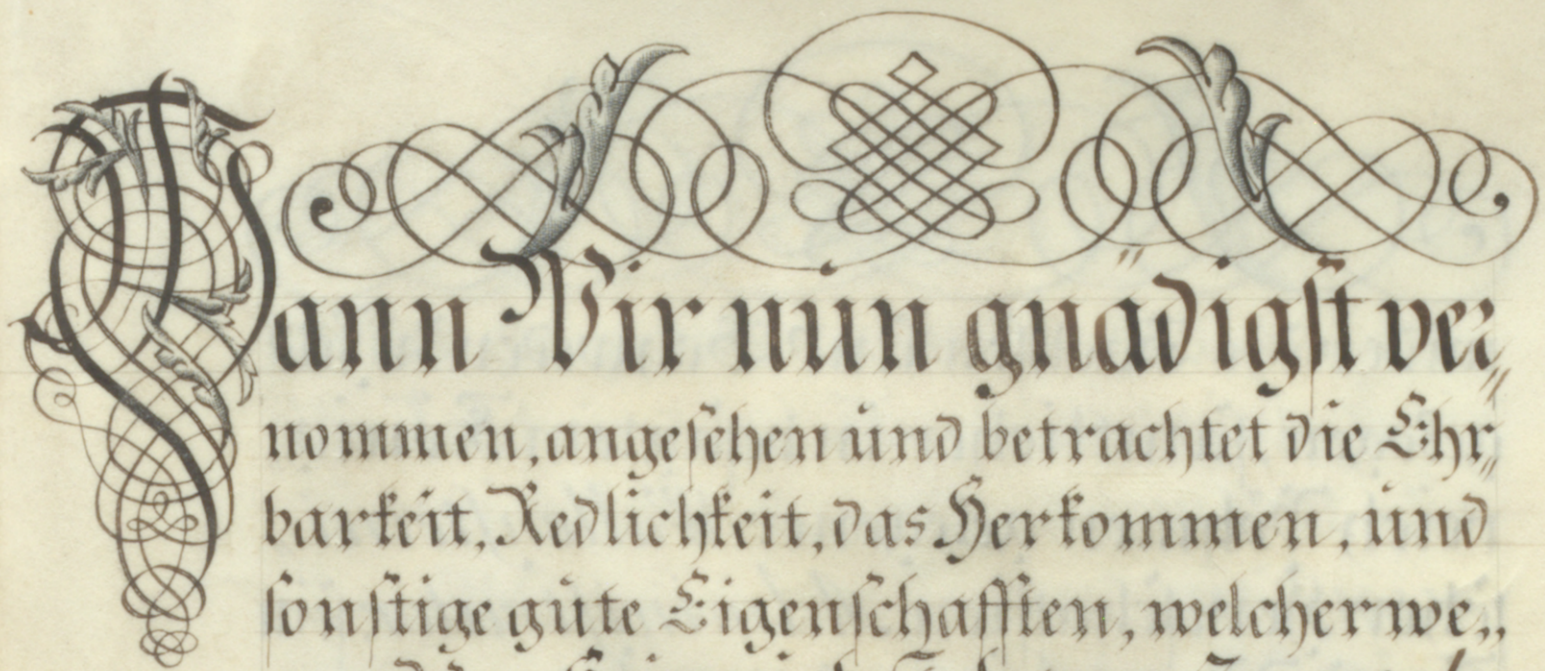 Wann Wir nun gnädigst ver⸗
nommen, angesehen und betrachtet die Ehr⸗
barkeit, Redlichkeit, das Herkommen, und
sonstige gute Eigenschafften, welcher we⸗